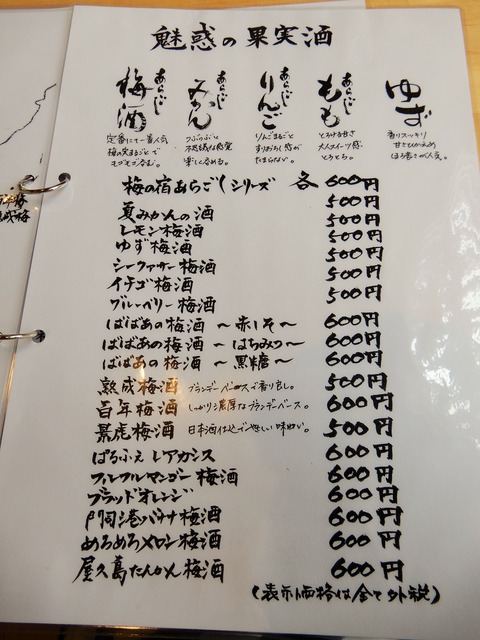 魅惑の果実酒
ゆず
香りスッキリ
甘さひかえめ
ほろ苦さが人気。
あらごし
もも
とろける甘さ
大人スイーツ感
とろとろ。
あらごし
りんご
りんごまるごと
すりおろし感が
たまらない。
あらごし
みかん
つぶつぶと
不思議な食覚
楽しく呑める。
あらごし
梅酒
定番にて一番人気
梅の実まるごとで
もぐもぐ呑む。
梅の宿あらごしシリーズ 各600円
夏みかんの酒 500円
レモン梅酒 500円
ゆず梅酒 500円
シークァーサー梅酒 500円
イチゴ梅酒 500円
ブルーベリー梅酒 500円
ばばあの梅酒 〜赤しそ〜 600円
ばばあの梅酒 〜はちみつ〜 600円
ばばあの梅酒 〜黒糖〜 600円
熟成梅酒 ブランデーベースで香り良し。 500円
百年梅酒 しっかり濃厚なブランデーベース。 600円
景虎梅酒 日本酒仕込で優しい味わい。 500円
ぱるふぇ レアカシス 600円
フルフルマンゴー梅酒 600円
ブラッドオレンジ 600円
門司港バナナ梅酒 600円
めろめろメロン梅酒 600円
屋久島たんかん梅酒 600円
(表示価格は全て外税)